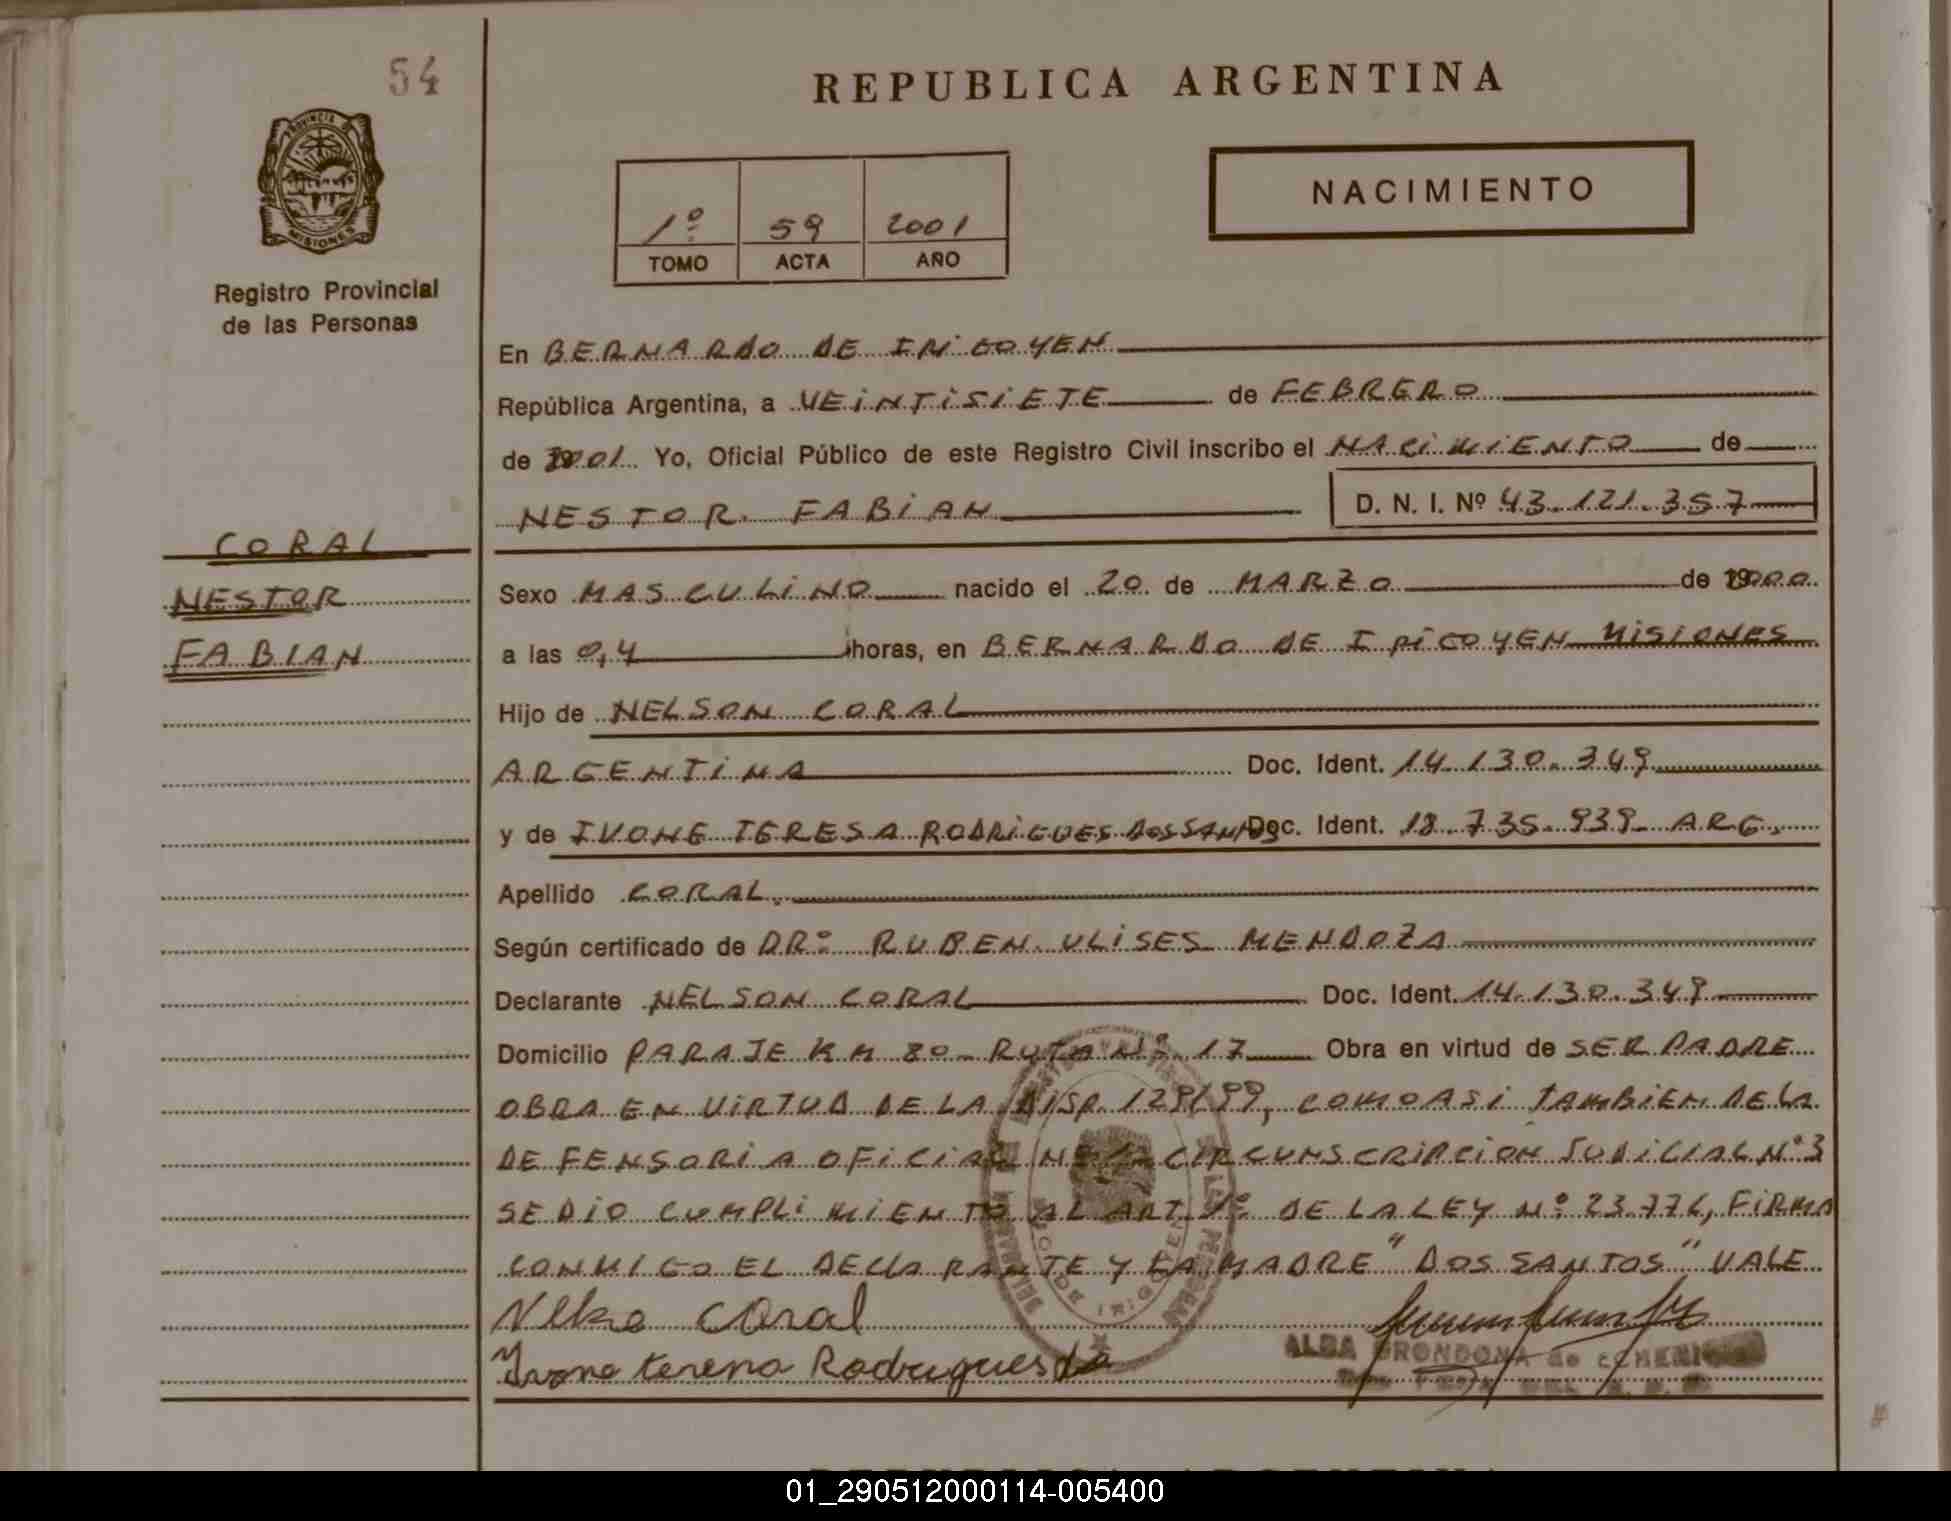 54
REPUBLICA ARGENTINA
PROVINCIA DE
MISIONES
Registro Provincial
de las Personas
1º 59 2001
TOMO ACTA AÑO
NACIMIENTO
En BERNARDO DE IRIGOYEN
República Argentina, a VEINTISIETE de FEBRERO
de 2001 Yo, Oficial Público de este Registro Civil inscribo el NACIMIENTO de
NESTOR FABIAN D. N. I. Nº 43.121.357
CORAL
NESTOR
FABIAN
Sexo MASCULINO nacido el 20 de MARZO de 2000
a las 0,4 horas, en BERNARDO DE IRIGOYEN MISIONES
Hijo de NELSON CORAL
ARGENTINA Doc. Ident. 14.130.349
y de IVONE TERESA RODRIGUES DOS SANTOS Doc. Ident. 18.735.939 ARG.
Apellido CORAL
Según certificado de DR: RUBEN ULISES MENDOZA
Declarante NELSON CORAL Doc. Ident. 14.130.349
Domicilio PARAJE KM 80 RUTA Nº 17 Obra en virtud de SER PADRE
OBRA EN VIRTUD DE LA DISP. 129/99, COMO ASI TAMBIEN DE LA
DEFENSORIA OFICIAL Nº CIRCUNSCRIPCION JUDICIAL Nº 3
SE DIO CUMPLIMIENTO AL ART. 1º DE LA LEY Nº 23.776, FIRMA
CONMIGO EL DECLARANTE Y LA MADRE "DOS SANTOS" VALE
Coral
Ivone teresa Rodrigues da
ALBA GRONDONA de
01_290512000114-005400